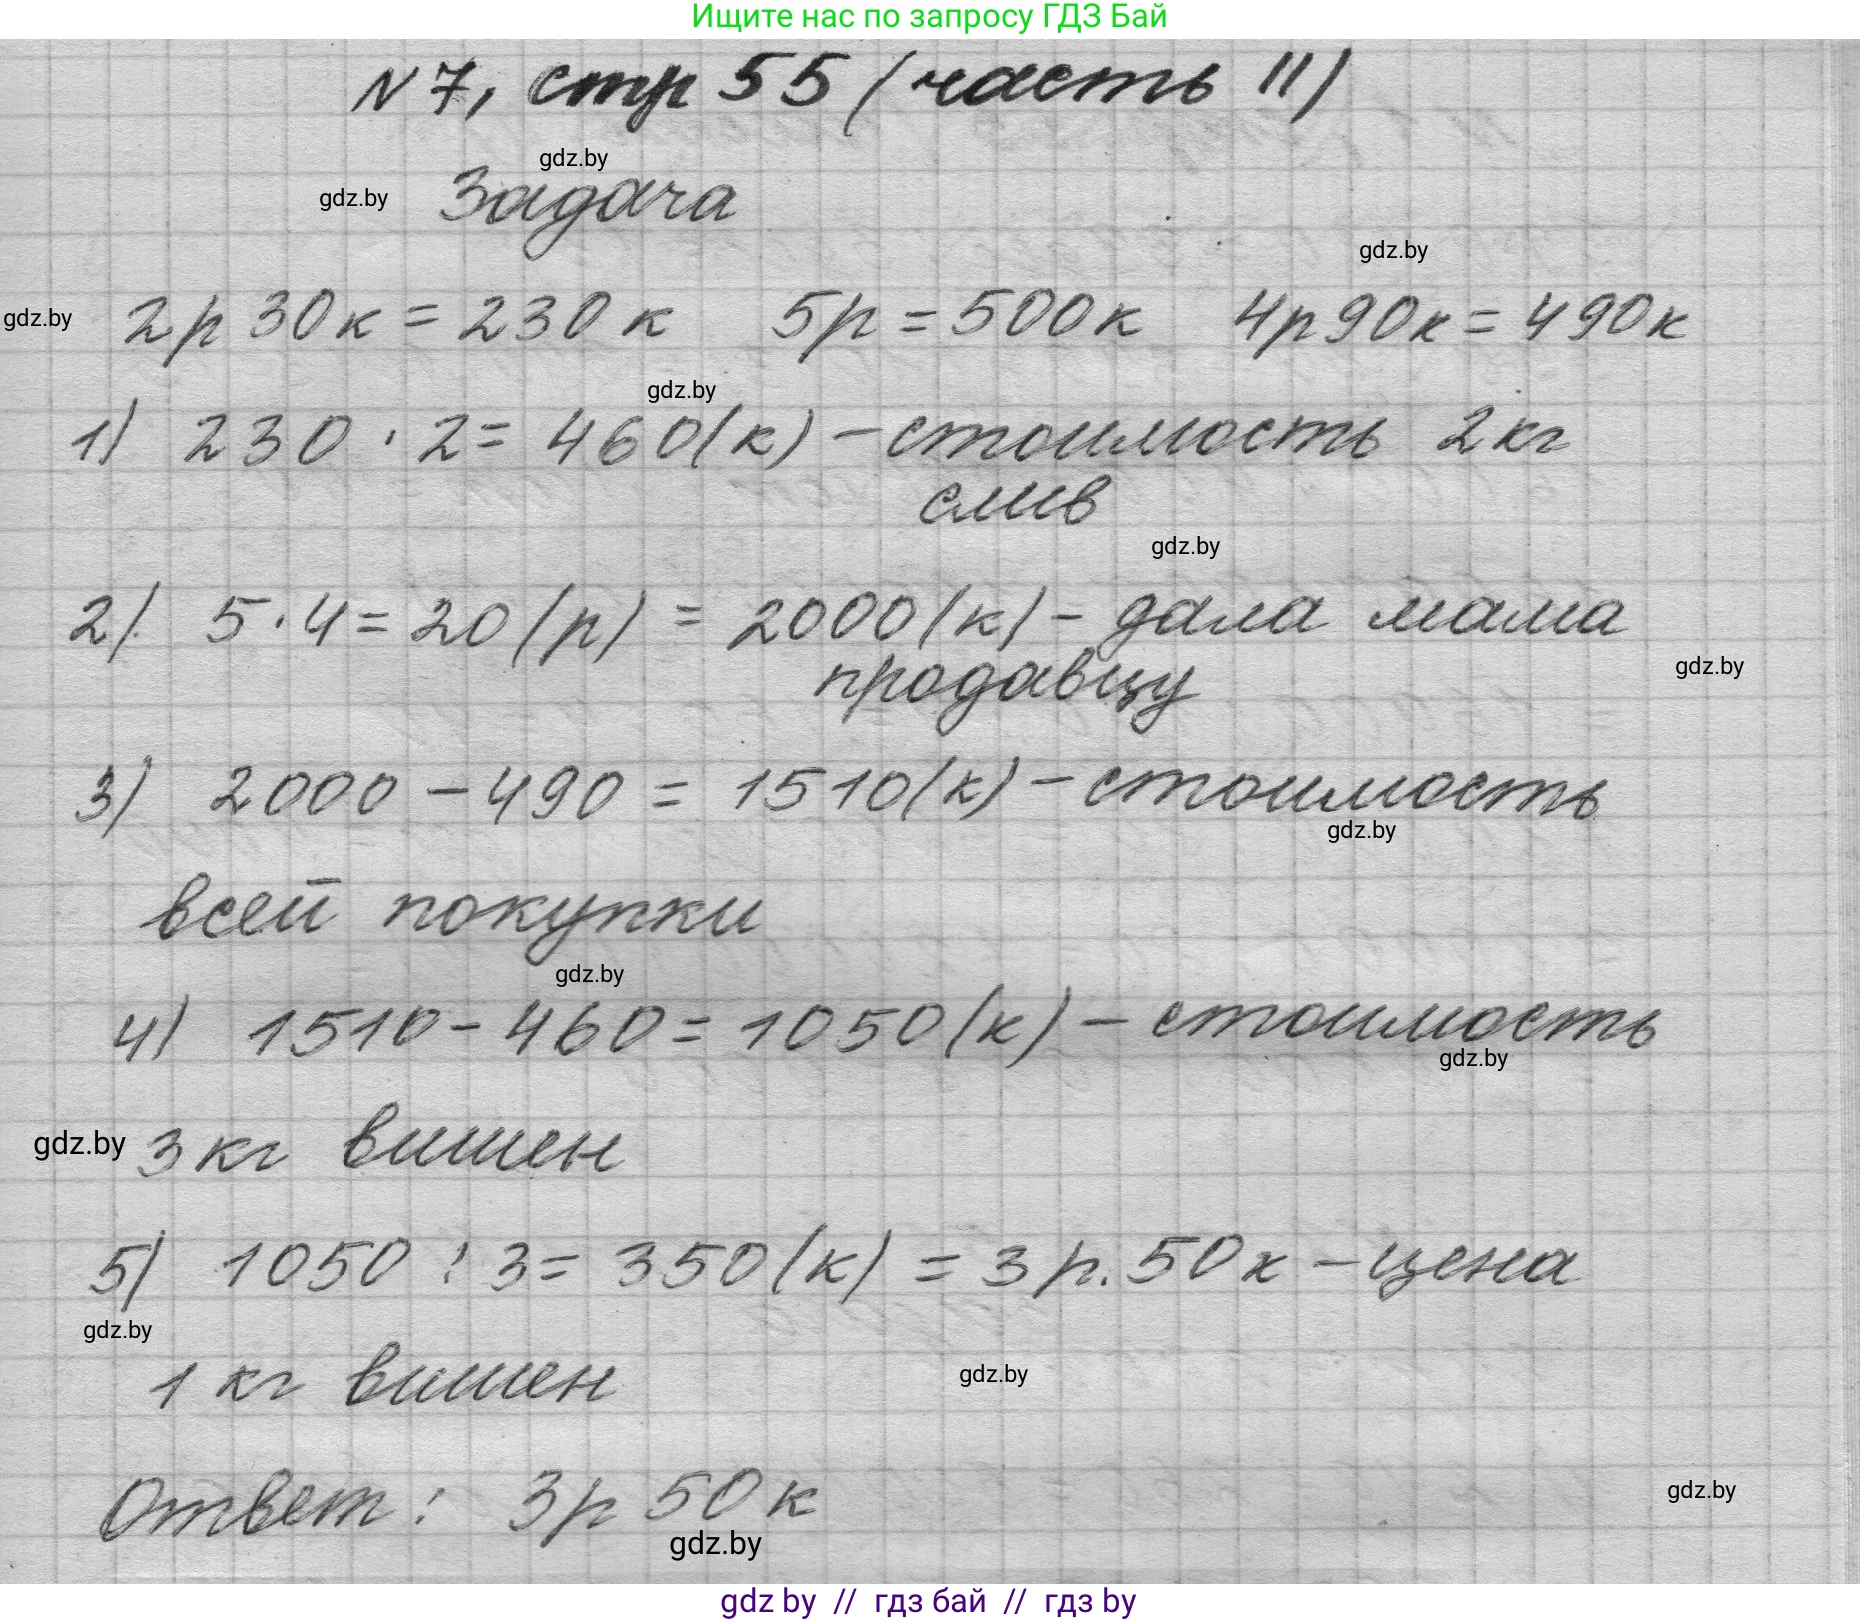 Ищите нас по запросу ГДЗ Бай
N 7, стр 55 (часть II)
gdz.by
gdz.by Задача
gdz.by
gdz.by 2р 30к = 230 к 5р = 500к 4р90к = 490к
gdz.by
1) 230 · 2 = 460(к) – стоимость 2кг
слив
gdz.by
2). 5·4 = 20 (р) = 2000(к) – дала мама
продавцу gdz.by
3) 2000 – 490 = 1510(к) – стоимость
gdz.by
всей покупки
gdz.by
4) 1510 – 460 = 1050(к) – стоимость
gdz.by
gdz.by 3 кг вишен
5) 1050 : 3 = 350(к) = 3 р. 50к – цена
gdz.by
1 кг вишен gdz.by
Ответ: 3р 50 к gdz.by
gdz.by
gdz by // гдз бай // гдз by